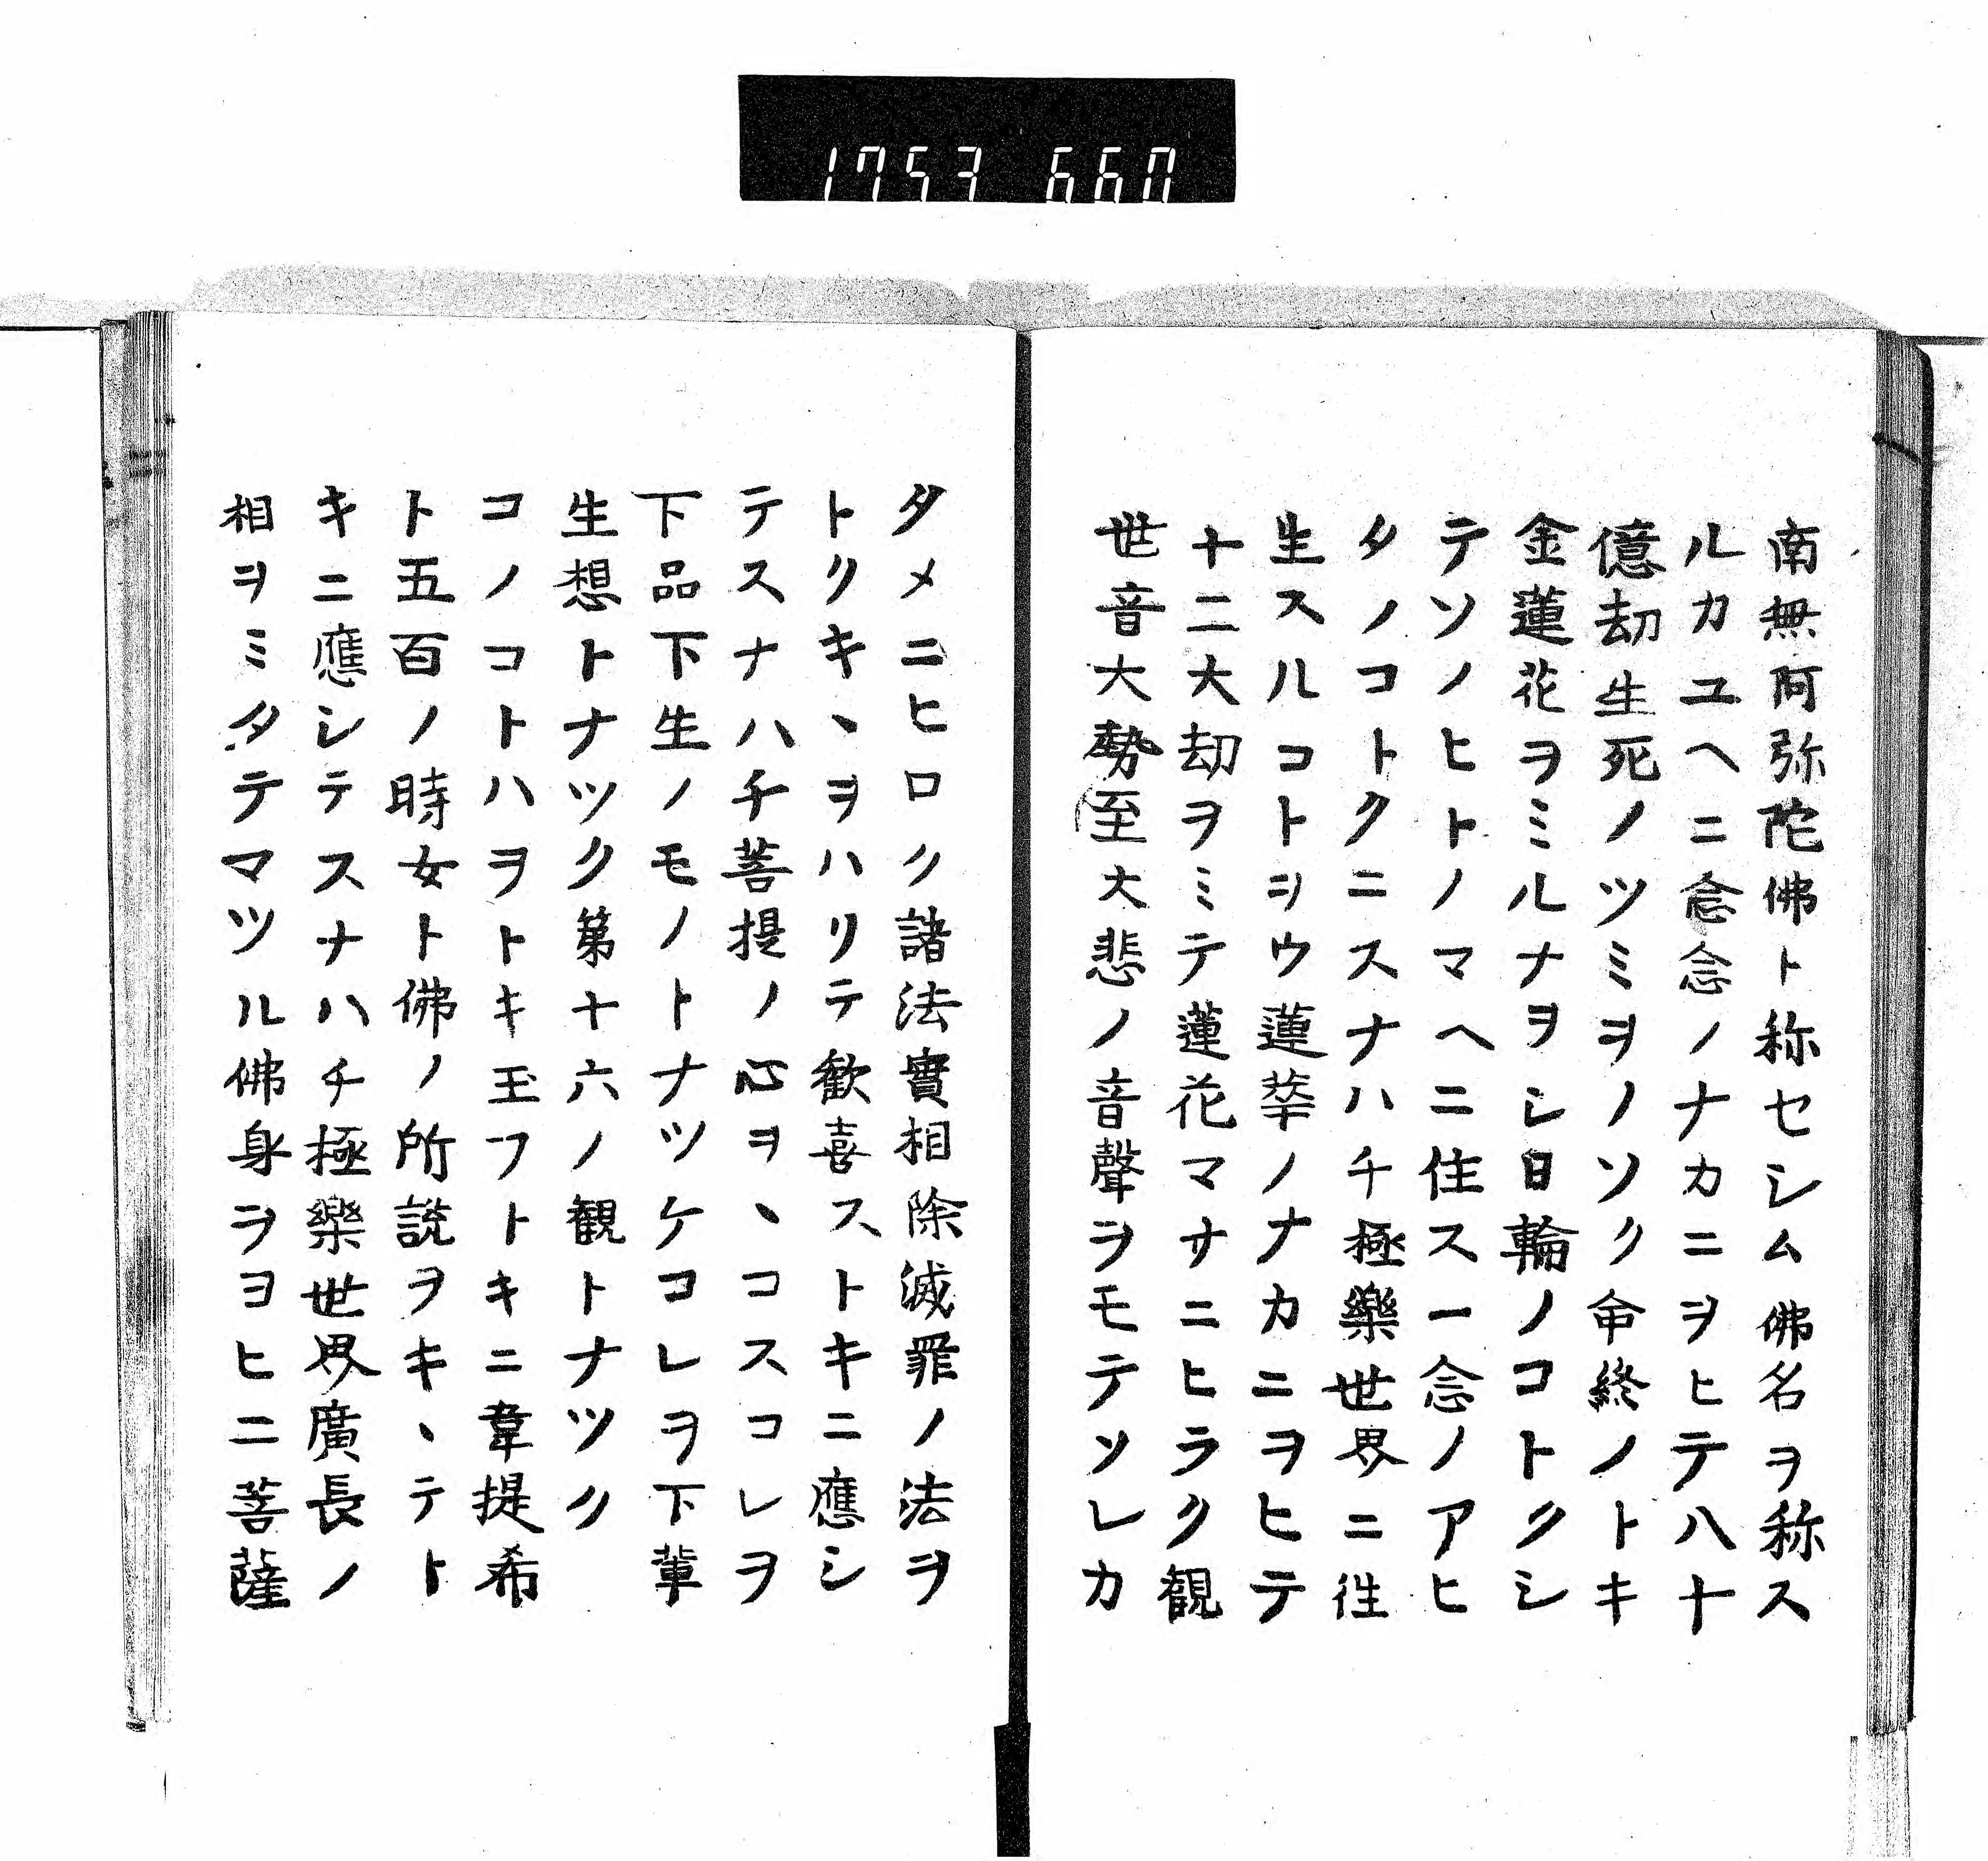 1753 660
南無阿弥陀佛ト称セシム佛名ヲ称ス
ルカユヘニ念念ノナカニヲヒテ八十
億劫生死ノツミヲノソク命終ノトキ
金蓮花ヲミルナヲシ日輪ノコトクシ
テソノヒトノマヘニ住ス一念ノアヒ
タノコトクニスナハチ極樂世界ニ往
生スルコトヲウ蓮華ノナカニヲヒテ
十二大劫ヲミテ蓮花マサニヒラク観
世音大勢至大悲ノ音聲ヲモテソレカ
タメニヒロク諸法實相除滅罪ノ法ヲ
トクキヽヲハリテ歓喜ストキニ應シ
テスナハチ菩提ノ心ヲヽコスコレヲ
下品下生ノモノトナツケコレヲ下輩
生想トナツク第十六ノ観トナツク
コノコトハヲトキ玉フトキニ韋提希
ト五百ノ時女ト佛ノ所説ヲキヽテト
キニ應シテスナハチ極樂世界廣長ノ
相ヲミタテマツル佛身ヲヨヒニ菩薩